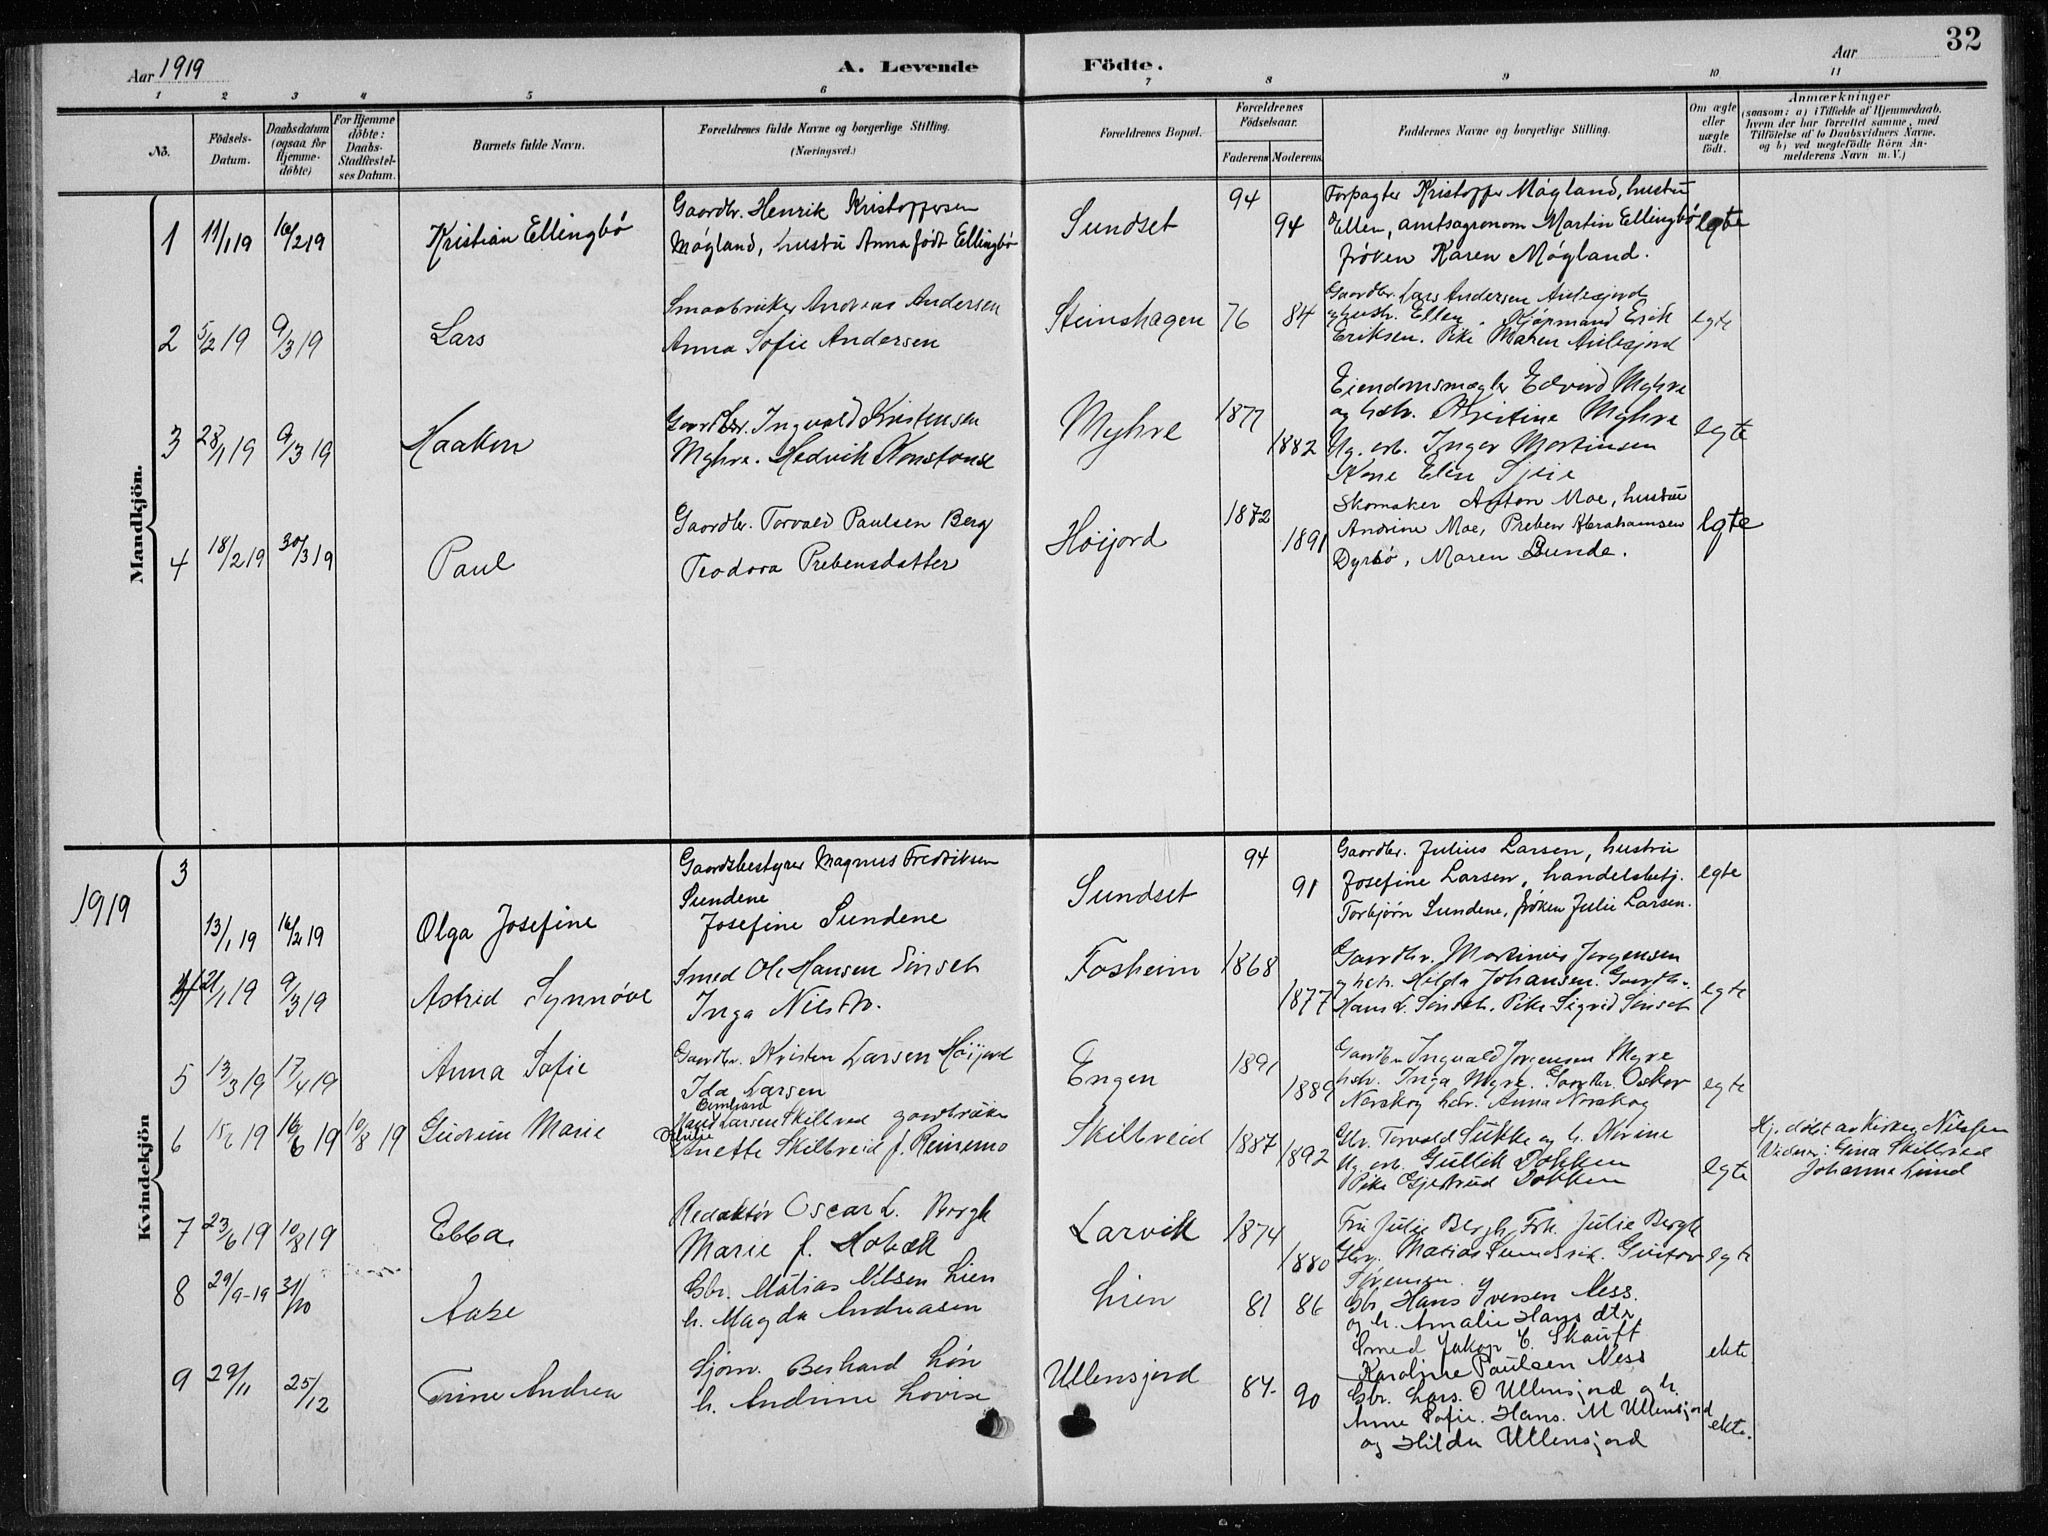 Aar 1919
A. Levende Födte.
Aar
32
1 2 3 4 5 6 7 8 9 10 11
No.
Födsels-Datum.
Daabsdatum (ogsaa for Hjemme-döbte)
For Hjemme döbte: Daabs-Stadfæstel-ses Datum.
Barnets fulde Navn.
Forældrenes fulde Navne og borgerlige Stilling. (Næringsvei.)
Forældrenes Bopæl.
Forældrenes Födselsaar.
Faderens
Moderens
Faddernes Navne og borgerlige Stilling.
Om ægte eller uægte födt.
Anmærkninger
(saasom: a) i Tilfælde af Hjemmedaab, hvem der har forrettet samme, med Tilföielse af to Daabsvidners Navne. og b) ved uægtefödte Börn An-melderens Navn m. V.)
Mandkjön.
1 11/1 19 16/2 19 Kristian Ellingbø
Gaardbr. Henrik Kristoffersen
Møgland, hustru Anna født Ellingbø
Sundset 94 94
Forpagter Kristoffer Møgland, hustru
Ellen, amtsagronom Martin Ellingbø
frøken Karen Møgland.
egte
2 5/2 19 9/3 19 Lars
Smaabruker Andreas Andersen
Anna Sofie Andersen
Steinshagen 76 84
Gaardbr. Lars Andersen
og hustr. Ellen. Kjøpmand Erik
Eriksen. Pike Maren
egte
3 28/1 19 9/3 19 Haakon
Gaardbr. Ingvald Kristensen
Myhre. Hedvik Konstanse
Myhre 1877 1882
Eiendomsmægler Edvard Myhre
og hstr. Kristine Myhre
Ug. arb. Inger Martinsen
Kone Elise
egte
4 18/2 19 30/3 19 Paul
Gaardbr. Torvald Paulsen Berg
Teodora Prebensdatter
Høijord 1872 1891
Skomaker Anton Moe, hustru
Andrine Moe, Preben Abrahamsen
Dyrbø, Maren Lunde.
egte
1919
Kvindekjön
3 13/1 19 16/2 19 Olga Josefine
Gaardsbestyrer Magnus Fredriksen
Sundene
Josefine Sundene
Sundset 94 91
Gaardbr. Julius Larsen, hustru
Josefine Larsen, handelsbetj.
Torbjørn Sundene, frøken Julie Larsen.
egte
4 21/1 19 9/3 19 Astrid Synnøve
Smed Ole Hansen
Inga
Fosheim 1868 1877
Gaardbr. Martinius Jørgensen
og hstr. Hilda Johansen. Gaardbr.
Hans L. Pike Sigrid
egte
5 13/3 19 17/4 19 Anna Sofie
Gaardbr. Kristen Larsen Høijord
Ida Larsen
Engen 1891 1889
Gaardbr. Ingvald Jørgensen Myre
hstr. Inga Myre. Gaardbr. Oskar
Norskog hstr. Anna Norskog
egte
6 15/6 19 16/6 19 10/8 19 Gudrun Marie
Bernhard
Larsen Skilbred gaardbruker
Anette Skilbreid f. Reinemo
Skilbreid 1887 1892
Gbr. Torvald Sukke og h. Norine
Ug. arb. Gullik Dokken
Pike Gjertrud Dokken
egte
Hj. døbt av Kirken Nilsen
Vidner: Gina Skilbred
Johanne Lund
7 23/6 19 10/8 19 Ebba
Redaktør Oscar L. Bergh
Marie f. Hobæk
Larvik 1874 1880
Fru Julie Bergh, Frk. Julie Bergh
Gbr. Matias Gustav
egte
8 29/9-19 31/10 Aase
Gbr. Matias Nilsen Lien
h. Magda Andreasen
Lien 81 86
Gbr. Hans Iversen Ness.
og h. Amalie Hansdtr
Smed Jakob C. Skauft
Karoline Paulsen Ness
ekte
9 29/11 25/12 Trine Andrea
Sjøm. Berhard Løn
h. Andrine Lovise
Ullensjord 84. 90
Gbr. Lars O Ullensjord og h.
Anne Sofie. Hans. M Ullensjord
og Hilda Ullensjord
ekte.